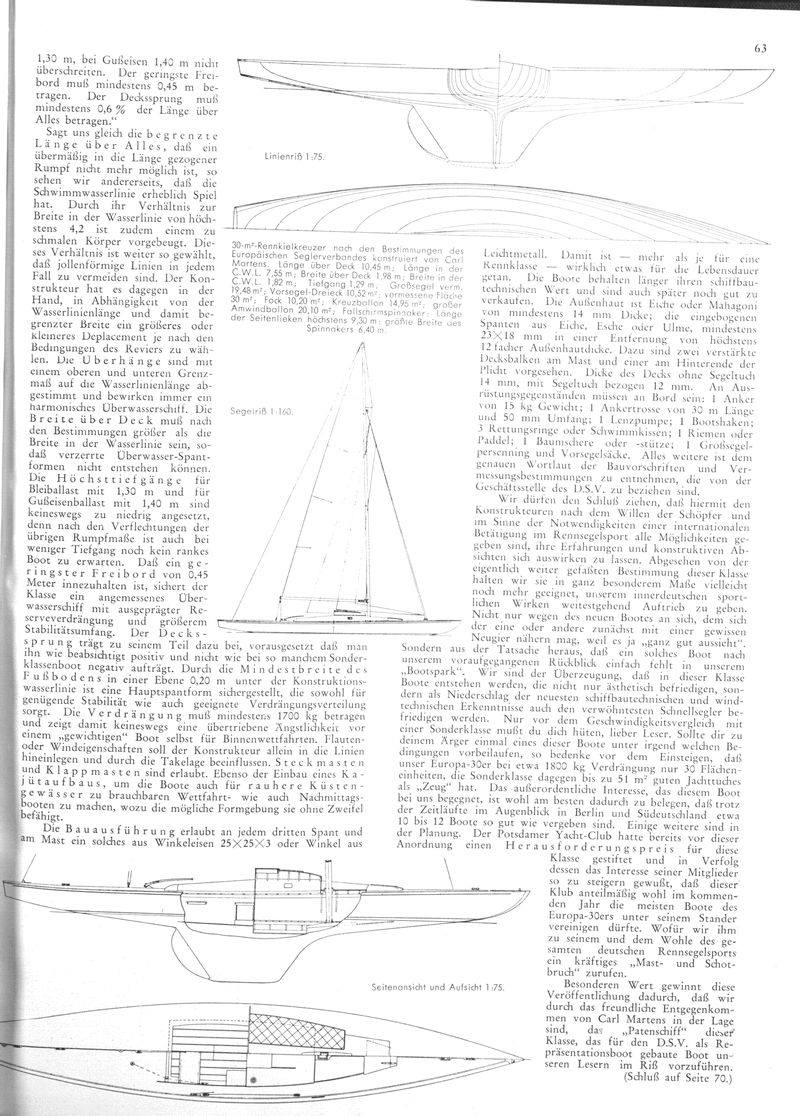 63
1,30 m, bei Gußeisen 1,40 m nicht
überschreiten. Der geringste Frei-
bord muß mindestens 0,45 m be-
tragen. Der Deckssprung muß
mindestens 0,6 % der Länge über
Alles betragen.“
Sagt uns gleich die begrenzte
Länge über Alles, daß ein
übermäßig in die Länge gezogener
Rumpf nicht mehr möglich ist, so
sehen wir andererseits, daß die
Schwimmwasserlinie erheblich Spiel
hat. Durch ihr Verhältnis zur
Breite in der Wasserlinie von höch-
stens 4,2 ist zudem einem zu
schmalen Körper vorgebeugt. Die-
ses Verhältnis ist weiter so gewählt,
daß jollenförmige Linien in jedem
Fall zu vermeiden sind. Der Kon-
strukteur hat es dagegen in der
Hand, in Abhängigkeit von der
Wasserlinienlänge und damit be-
grenzter Breite ein größeres oder
kleineres Deplacement je nach den
Bedingungen des Reviers zu wäh-
len. Die Überhänge sind mit
einem oberen und unteren Grenz-
maß auf die Wasserlinienlänge ab-
gestimmt und bewirken immer ein
harmonisches Überwasserschiff. Die
Breite über Deck muß nach
den Bestimmungen größer als die
Breite in der Wasserlinie sein, so-
daß verzerrte Überwasser-Spant-
formen nicht entstehen können.
Die Höchsttiefgänge für
Bleiballast mit 1,30 m und für
Gußeisenballast mit 1,40 m sind
keineswegs zu niedrig angesetzt,
denn nach den Verflechtungen der
übrigen Rumpfmaße ist auch bei
weniger Tiefgang noch kein rankes
Boot zu erwarten. Daß ein ge-
ringster Freibord von 0,45
Meter innezuhalten ist, sichert der
Klasse ein angemessenes Über-
wasserschiff mit ausgeprägter Re-
serveverdrängung und größerem
Stabilitätsumfang. Der Decks-
sprung trägt zu seinem Teil dazu bei, vorausgesetzt daß man
ihn wie beabsichtigt positiv und nicht wie bei so manchem Sonder-
klassenboot negativ aufträgt. Durch die Mindestbreite des
Fußbodens in einer Ebene 0,20 m unter der Konstruktions-
wasserlinie ist eine Hauptspantform sichergestellt, die sowohl für
genügende Stabilität wie auch geeignete Verdrängungsverteilung
sorgt. Die Verdrängung muß mindestens 1700 kg betragen
und zeigt damit keineswegs eine übertriebene Ängstlichkeit vor
einem „gewichtigen“ Boot selbst für Binnenwettfahrten. Flauten-
oder Windeigenschaften soll der Konstrukteur allein in die Linien
hineinlegen und durch die Takelage beeinflussen. Steckmasten
und Klappmasten sind erlaubt. Ebenso der Einbau eines Ka-
jütaufbaus, um die Boote auch für rauhere Küsten-
gewässer zu brauchbaren Wettfahrt- wie auch Nachmittags-
booten zu machen, wozu die mögliche Formgebung sie ohne Zweifel
befähigt.
Die Bauausführung erlaubt an jedem dritten Spant und
am Mast ein solches aus Winkeleisen 25×25×3 oder Winkel aus
Linienriß 1:75.
30-m²-Rennkielkreuzer nach den Bestimmungen des
Europäischen Seglerverbandes konstruiert von Carl
Martens. Länge über Deck 10,45 m; Länge in der
C.W.L. 7,55 m; Breite über Deck 1,98 m; Breite in der
C.W.L. 1,82 m; Tiefgang 1,29 m; Großsegel verm.
19,48 m²; Vorsegel-Dreieck 10,52 m²; vermessene Fläche
30 m²; Fock 10,20 m²; Kreuzballon 14,95 m²; großer
Amwindballon 20,10 m²; Fallschirmspinnaker: Länge
der Seitenlieken höchstens 9,30 m; größte Breite des
Spinnakers 6,40 m.
Segelriß 1:160.
Leichtmetall. Damit ist — mehr als je für eine
Rennklasse — wirklich etwas für die Lebensdauer
getan. Die Boote behalten länger ihren schiffbau-
technischen Wert und sind auch später noch gut zu
verkaufen. Die Außenhaut ist Eiche oder Mahagoni
von mindestens 14 mm Dicke; die eingebogenen
Spanten aus Eiche, Esche oder Ulme, mindestens
23×18 mm in einer Entfernung von höchstens
12facher Außenhautdicke. Dazu sind zwei verstärkte
Decksbalken am Mast und einer am Hinterende der
Plicht vorgesehen. Dicke des Decks ohne Segeltuch
14 mm, mit Segeltuch bezogen 12 mm. An Aus-
rüstungsgegenständen müssen an Bord sein: 1 Anker
von 15 kg Gewicht; 1 Ankertrosse von 30 m Länge
und 50 mm Umfang; 1 Lenzpumpe; 1 Bootshaken;
3 Rettungsringe oder Schwimmkissen; 1 Riemen oder
Paddel; 1 Baumschere oder -stütze; 1 Großsegel-
persenning und Vorsegelsäcke. Alles weitere ist dem
genauen Wortlaut der Bauvorschriften und Ver-
messungsbestimmungen zu entnehmen, die von der
Geschäftsstelle des D.S.V. zu beziehen sind.
Wir dürfen den Schluß ziehen, daß hiermit den
Konstrukteuren nach dem Willen der Schöpfer und
im Sinne der Notwendigkeiten einer internationalen
Betätigung im Rennsegelsport alle Möglichkeiten ge-
geben sind, ihre Erfahrungen und konstruktiven Ab-
sichten sich auswirken zu lassen. Abgesehen von der
eigentlich weiter gefaßten Bestimmung dieser Klasse
halten wir sie in ganz besonderem Maße vielleicht
noch mehr geeignet, unserem innerdeutschen sport-
lichen Wirken weitestgehend Auftrieb zu geben.
Nicht nur wegen des neuen Bootes an sich, dem sich
der eine oder andere zunächst mit einer gewissen
Neugier nähern mag, weil es ja „ganz gut aussieht“.
Sondern aus der Tatsache heraus, daß ein solches Boot nach
unserem voraufgegangenen Rückblick einfach fehlt in unserem
„Bootspark“. Wir sind der Überzeugung, daß in dieser Klasse
Boote entstehen werden, die nicht nur ästhetisch befriedigen, son-
dern als Niederschlag der neuesten schiffbautechnischen und wind-
technischen Erkenntnisse auch den verwöhntesten Schnellsegler be-
friedigen werden. Nur vor dem Geschwindigkeitsvergleich mit
einer Sonderklasse mußt du dich hüten, lieber Leser. Sollte dir zu
deinem Ärger einmal eines dieser Boote unter irgend welchen Be-
dingungen vorbeilaufen, so bedenke vor dem Einsteigen, daß
unser Europa-30er bei etwa 1800 kg Verdrängung nur 30 Flächen-
einheiten, die Sonderklasse dagegen bis zu 51 m² guten Jachttuches
als „Zeug“ hat. Das außerordentliche Interesse, das diesem Boot
bei uns begegnet, ist wohl am besten dadurch zu belegen, daß trotz
der Zeitläufte im Augenblick in Berlin und Süddeutschland etwa
10 bis 12 Boote so gut wie vergeben sind. Einige weitere sind in
der Planung. Der Potsdamer Yacht-Club hatte bereits vor dieser
Anordnung einen Herausforderungspreis für diese
Klasse gestiftet und in Verfolg
dessen das Interesse seiner Mitglieder
so zu steigern gewußt, daß dieser
Klub anteilmäßig wohl im kommen-
den Jahr die meisten Boote des
Europa-30ers unter seinem Stander
vereinigen dürfte. Wofür wir ihm
zu seinem und dem Wohle des ge-
samten deutschen Rennsegelsports
ein kräftiges „Mast- und Schot-
bruch“ zurufen.
Besonderen Wert gewinnt diese
Veröffentlichung dadurch, daß wir
durch das freundliche Entgegenkom-
men von Carl Martens in der Lage
sind, das „Patenschiff“ dieser
Klasse, das für den D.S.V. als Re-
präsentationsboot gebaute Boot un-
seren Lesern im Riß vorzuführen.
(Schluß auf Seite 70.)
Seitenansicht und Aufsicht 1:75.